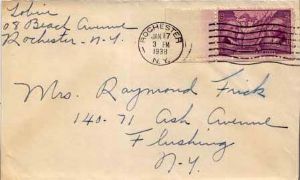 08 Beach Avenue
Rochester - N.Y.
ROCHESTER
JAN 17
3 PM
1938
N.Y.
Mrs. Raymond Frick
140-71 Ash Avenue
Flushing
N-Y.